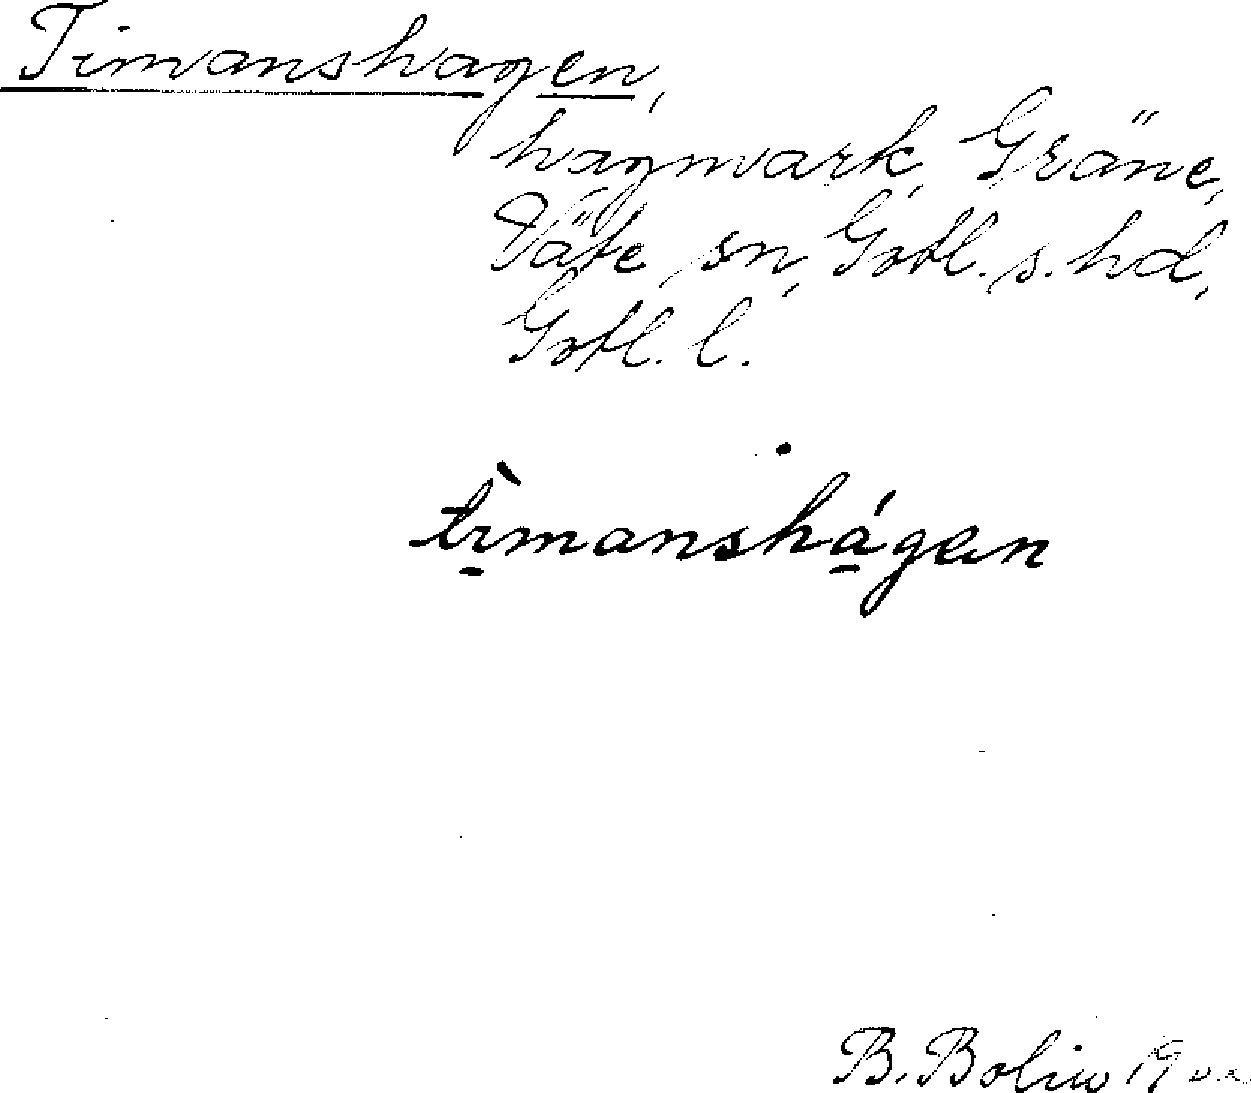 Timanshagen,
hagmark, Gräne,
Väte sn, Gotl. s. hd,
Gotl. l.
tìmanshágen
B. Bolin 19